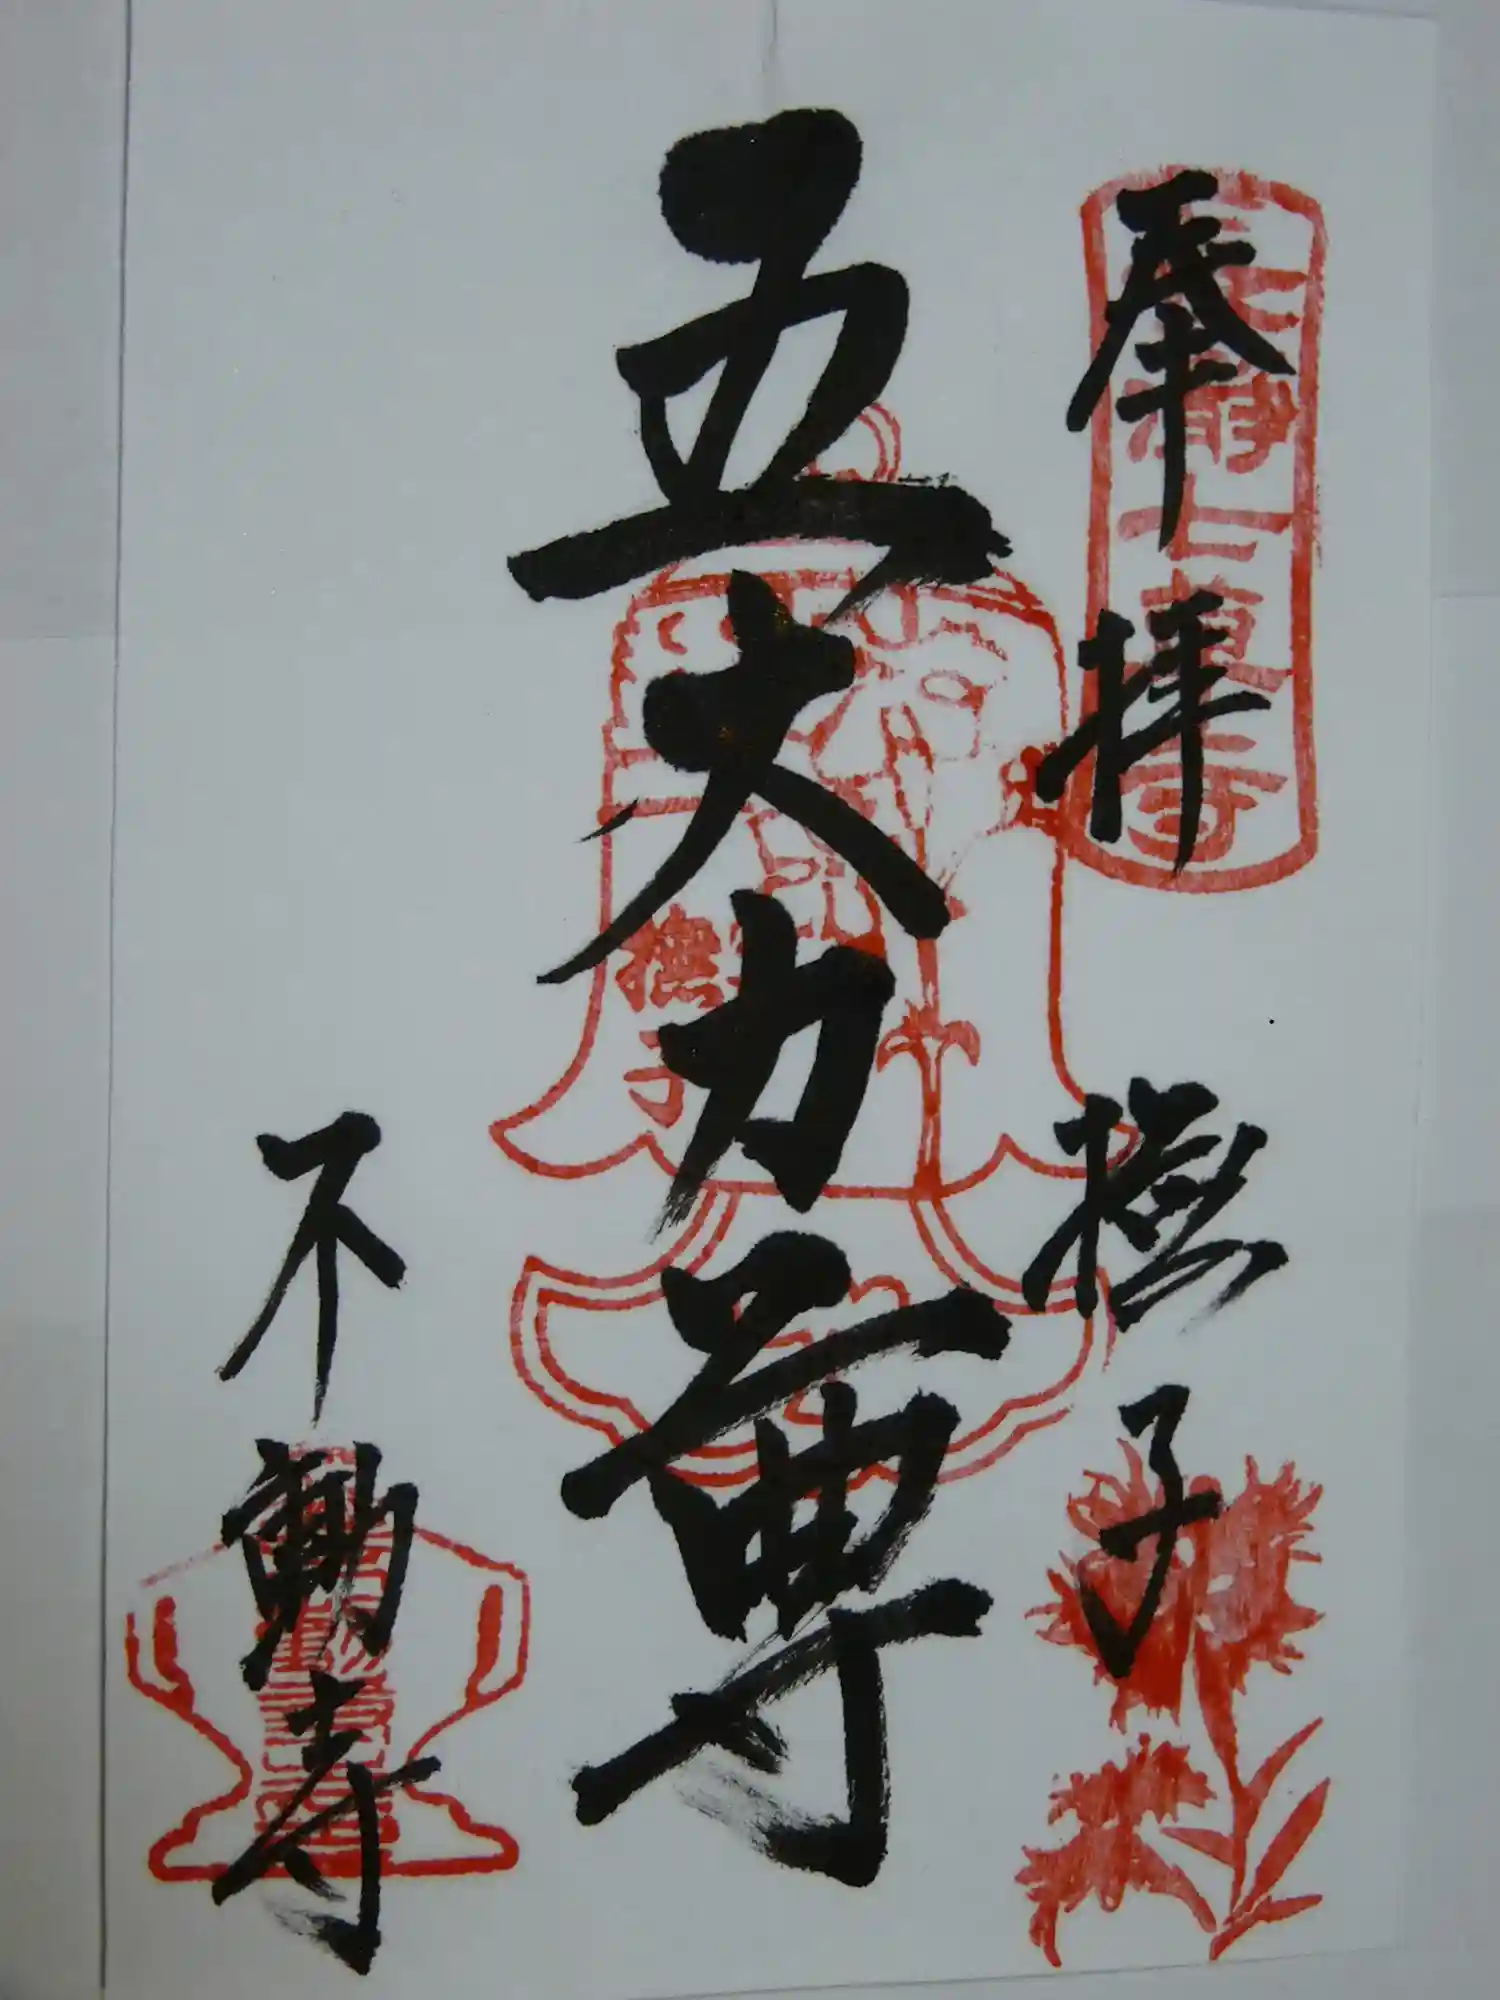 奉拝 撫子
五大力尊
不動寺
撫
子